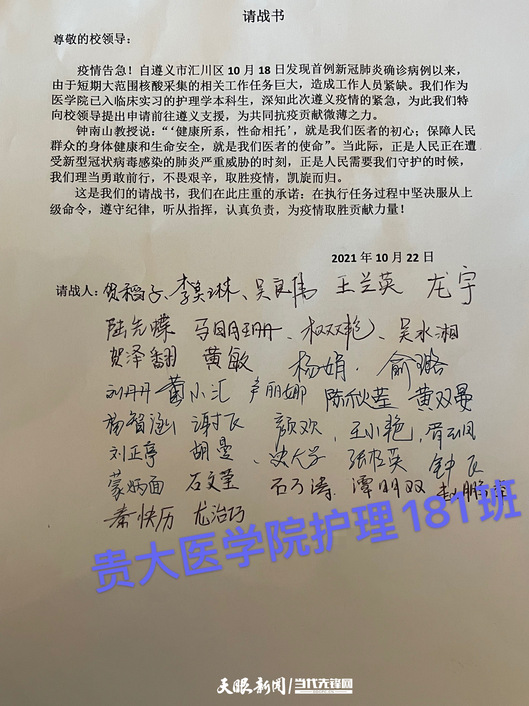 请战书
尊敬的校领导：
疫情告急！自遵义市汇川区 10 月 18 日发现首例新冠肺炎确诊病例以来，
由于短期大范围核酸采集的相关工作任务巨大，造成工作人员紧缺。我们作为
医学院已入临床实习的护理学本科生，深知此次遵义疫情的紧急，为此我们特
向校领导提出申请前往遵义支援，为共同抗疫贡献微薄之力。
钟南山教授说：“‘健康所系，性命相托’，就是我们医者的初心；保障人民
群众的身体健康和生命安全，就是我们医者的使命”。当此际，正是人民正在遭
受新型冠状病毒感染的肺炎严重威胁的时刻，正是人民需要我们守护的时候，
我们理当勇敢前行，不畏艰辛，取胜疫情，凯旋而归。
这是我们的请战书，我们在此庄重的承诺：在执行任务过程中坚决服从上
级命令，遵守纪律，听从指挥，认真负责，为疫情取胜贡献力量！
2021 年 10 月 22 日
请战人：贺稻子、李美琳、吴良伟 王兰英 龙宇
陆先嫦 马明珊、权双艳、吴水湘
贺泽翻 黄敏 杨娟 俞璐
刘丹丹 黄小汇 卢丽娜 陈秋莹 黄双曼
杨智涵 谢飞 颜欢、王小艳
刘正婷 胡曼、史大学 张桂英 钟飞
蒙炳面 石文莹 石乃涛 谭明双
秦快历 尤治巧
贵大医学院护理181班
天眼新闻 当代先锋网